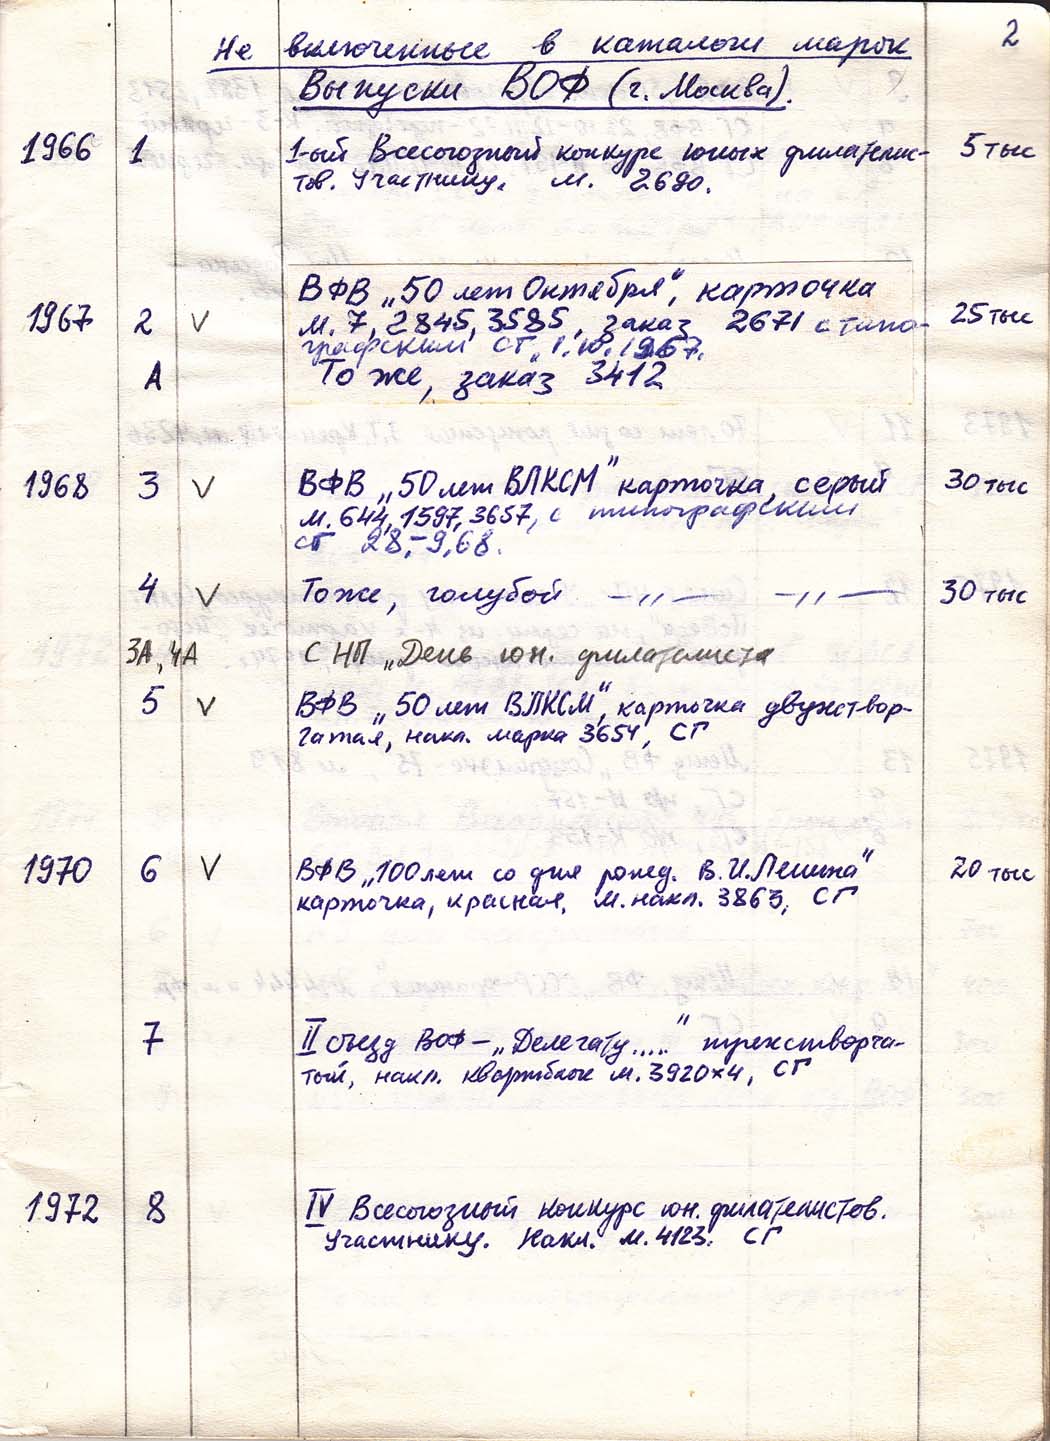 2
Не включенные в каталоги марок
Выпуски ВОФ (г. Москва).
1966 1 1-ый Всесоюзный конкурс юных филателис- 5 тыс
тов. Участнику. м. 2690.
ВФВ „50 лет Октября“, карточка
1967 2 V м. 7, 2845, 3585, заказ 2671 с типо- 25 тыс
графским СГ. 1.10.1967.
А То же, заказ 3412
1968 3 V ВФВ „50 лет ВЛКСМ“ карточка, серый 30 тыс
м. 644, 1597, 3657, с типографским
СГ 28.-9.68.
4 V Тоже, голубой —„— —„— 30 тыс
3А, 4А С НП „День юн. филателиста
5 V ВФВ „50 лет ВЛКСМ“, карточка двухствор-
чатая, накл. марка 3654, СГ
1970 6 V ВФВ „100 лет со дня рожд. В.И.Ленина“ 20 тыс
карточка, красная, м. накл. 3863, СГ
7 II съезд ВОФ – „Делегату.....“ трехстворча-
тый, накл. квартблок м. 3920×4, СГ
1972 8 IV Всесоюзный конкурс юн. филателистов.
Участнику. Накл. м. 4123. СГ